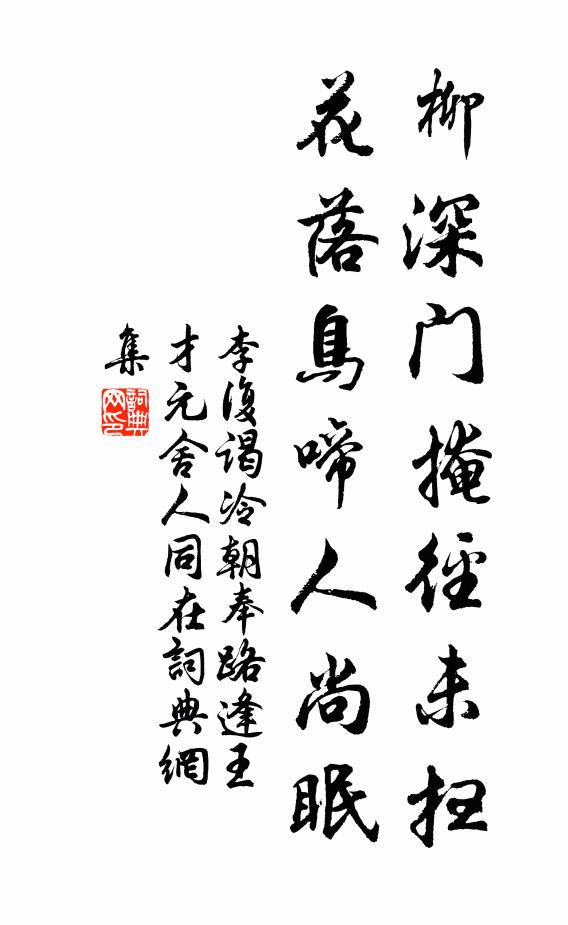 柳深門掩徑未掃
花落鳥啼人尚眠
李復謁冷朝奉路逢王
才元舍人同在詞典網
集
詞典
网印